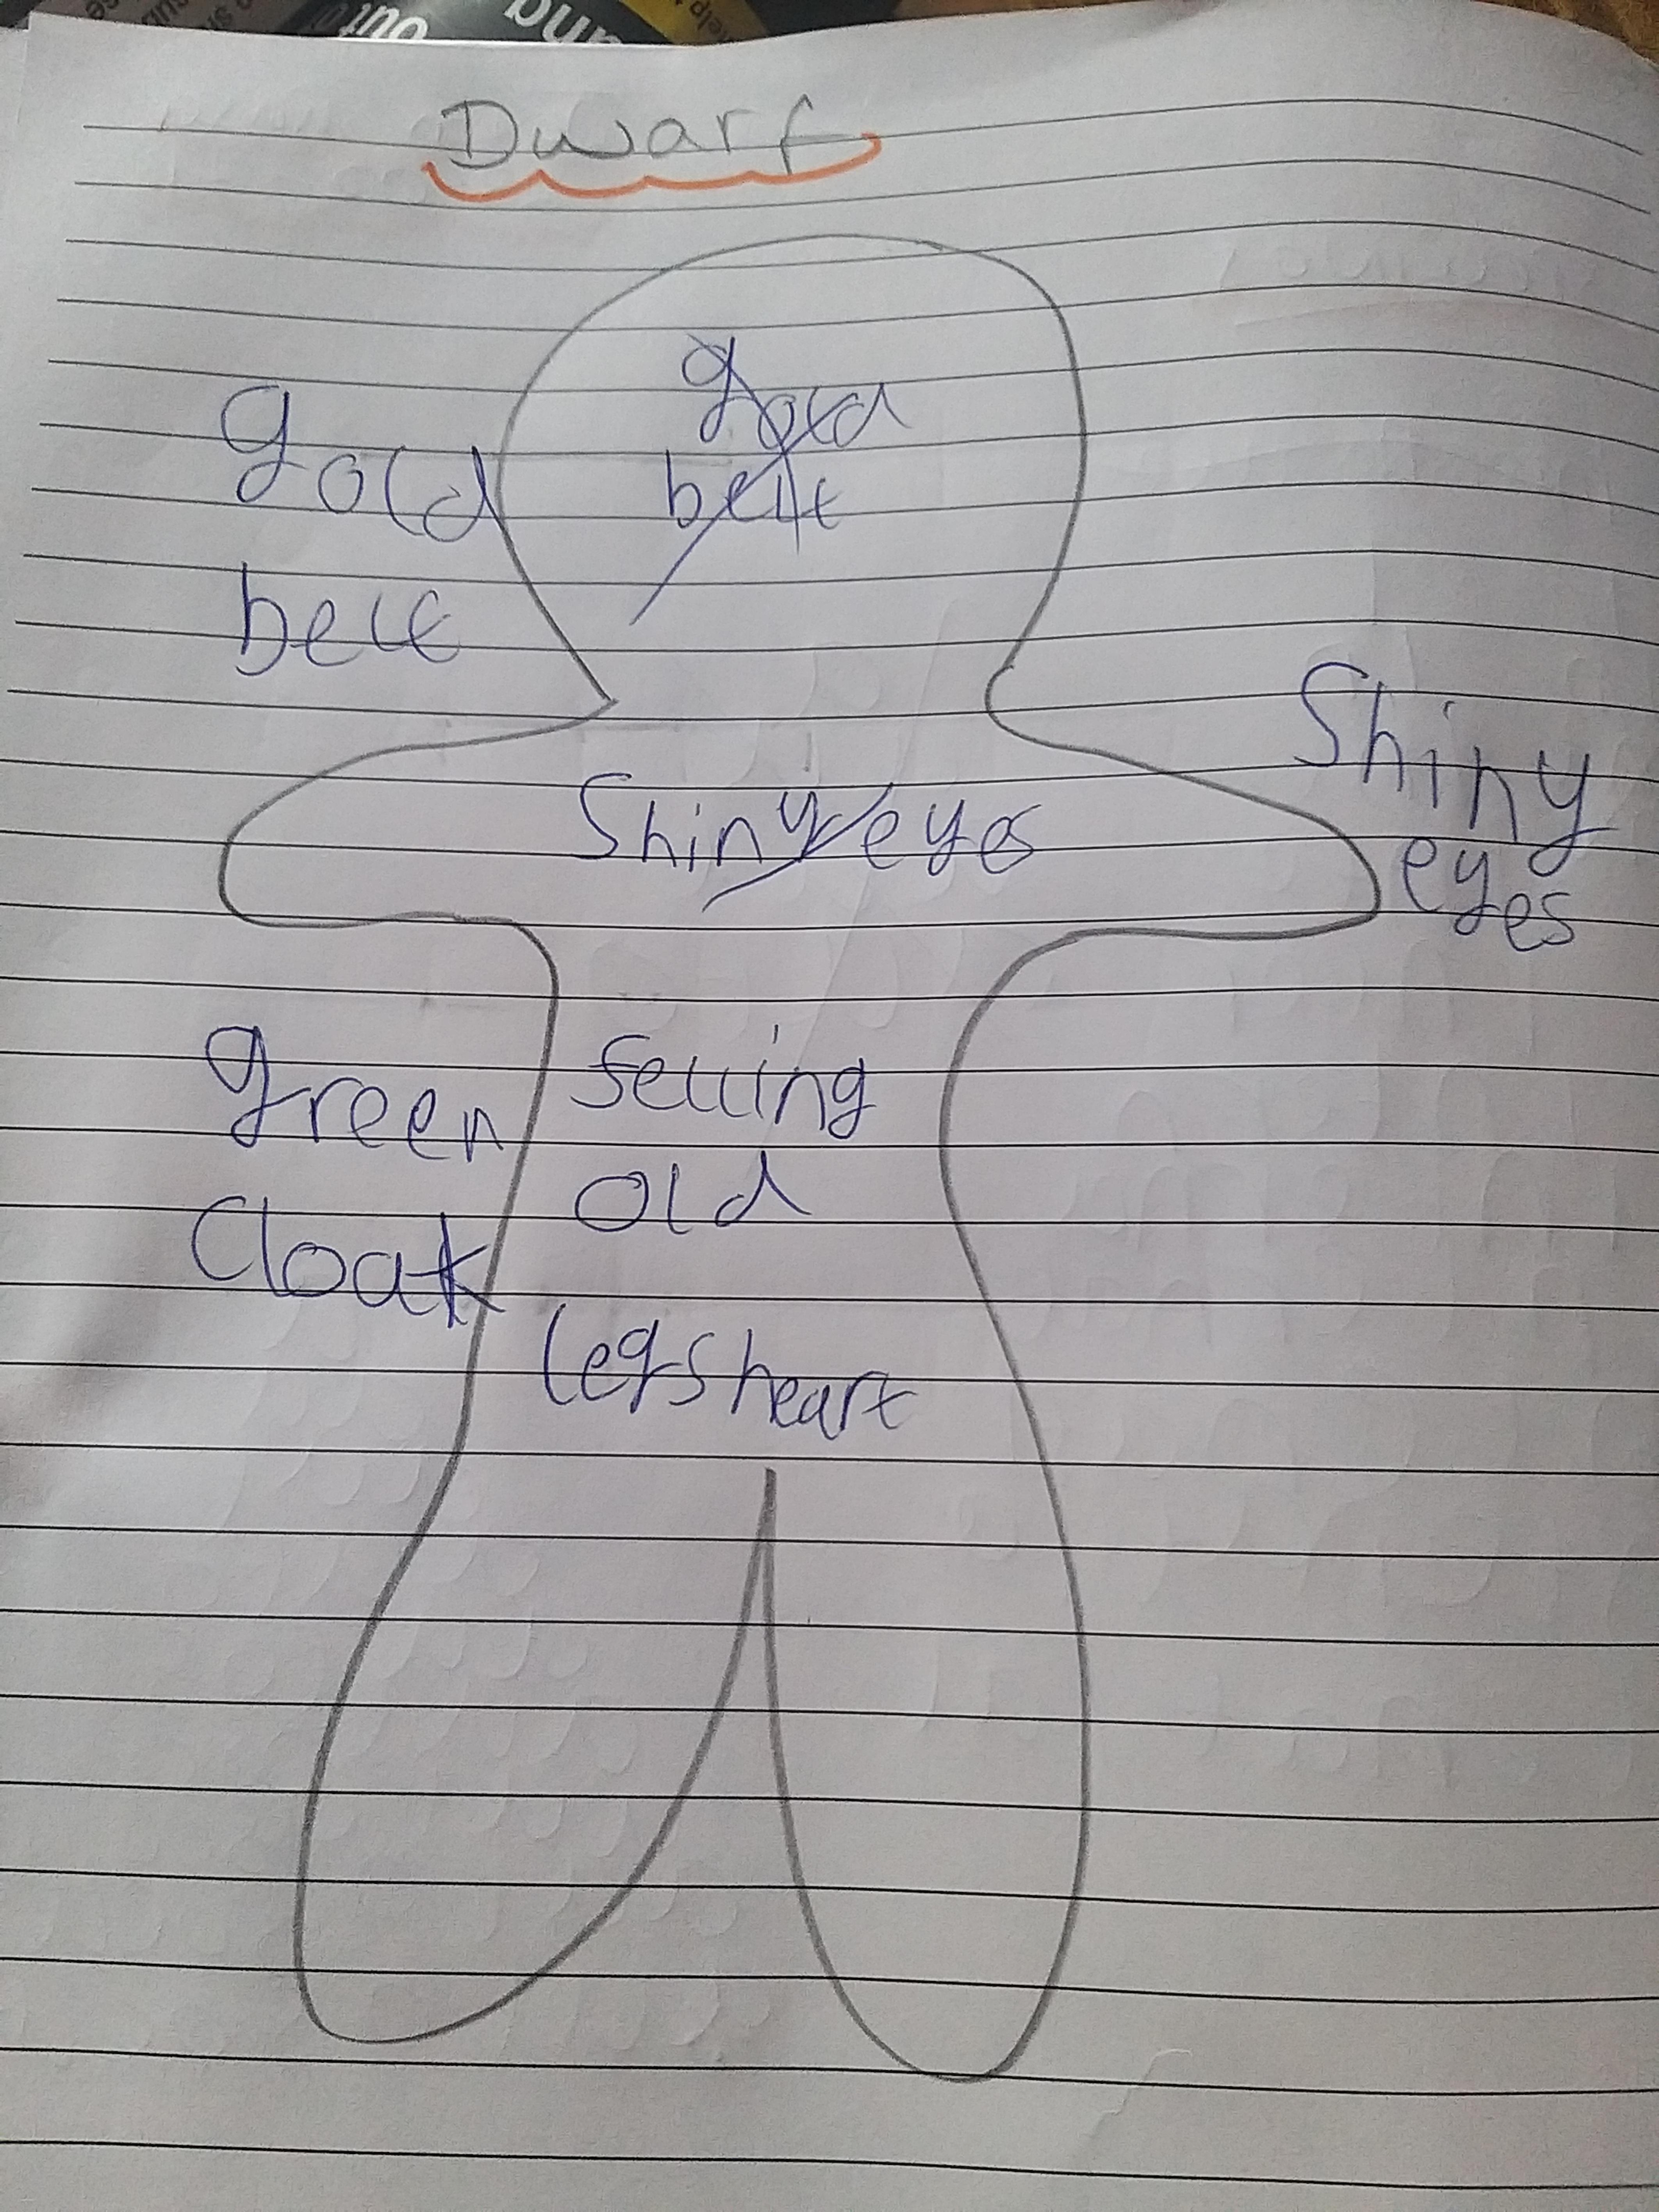 Dwarf
gold
belt
gold
belt
Shiny eyes
Shiny
eyes
green
Cloak
felling
old
legs heart